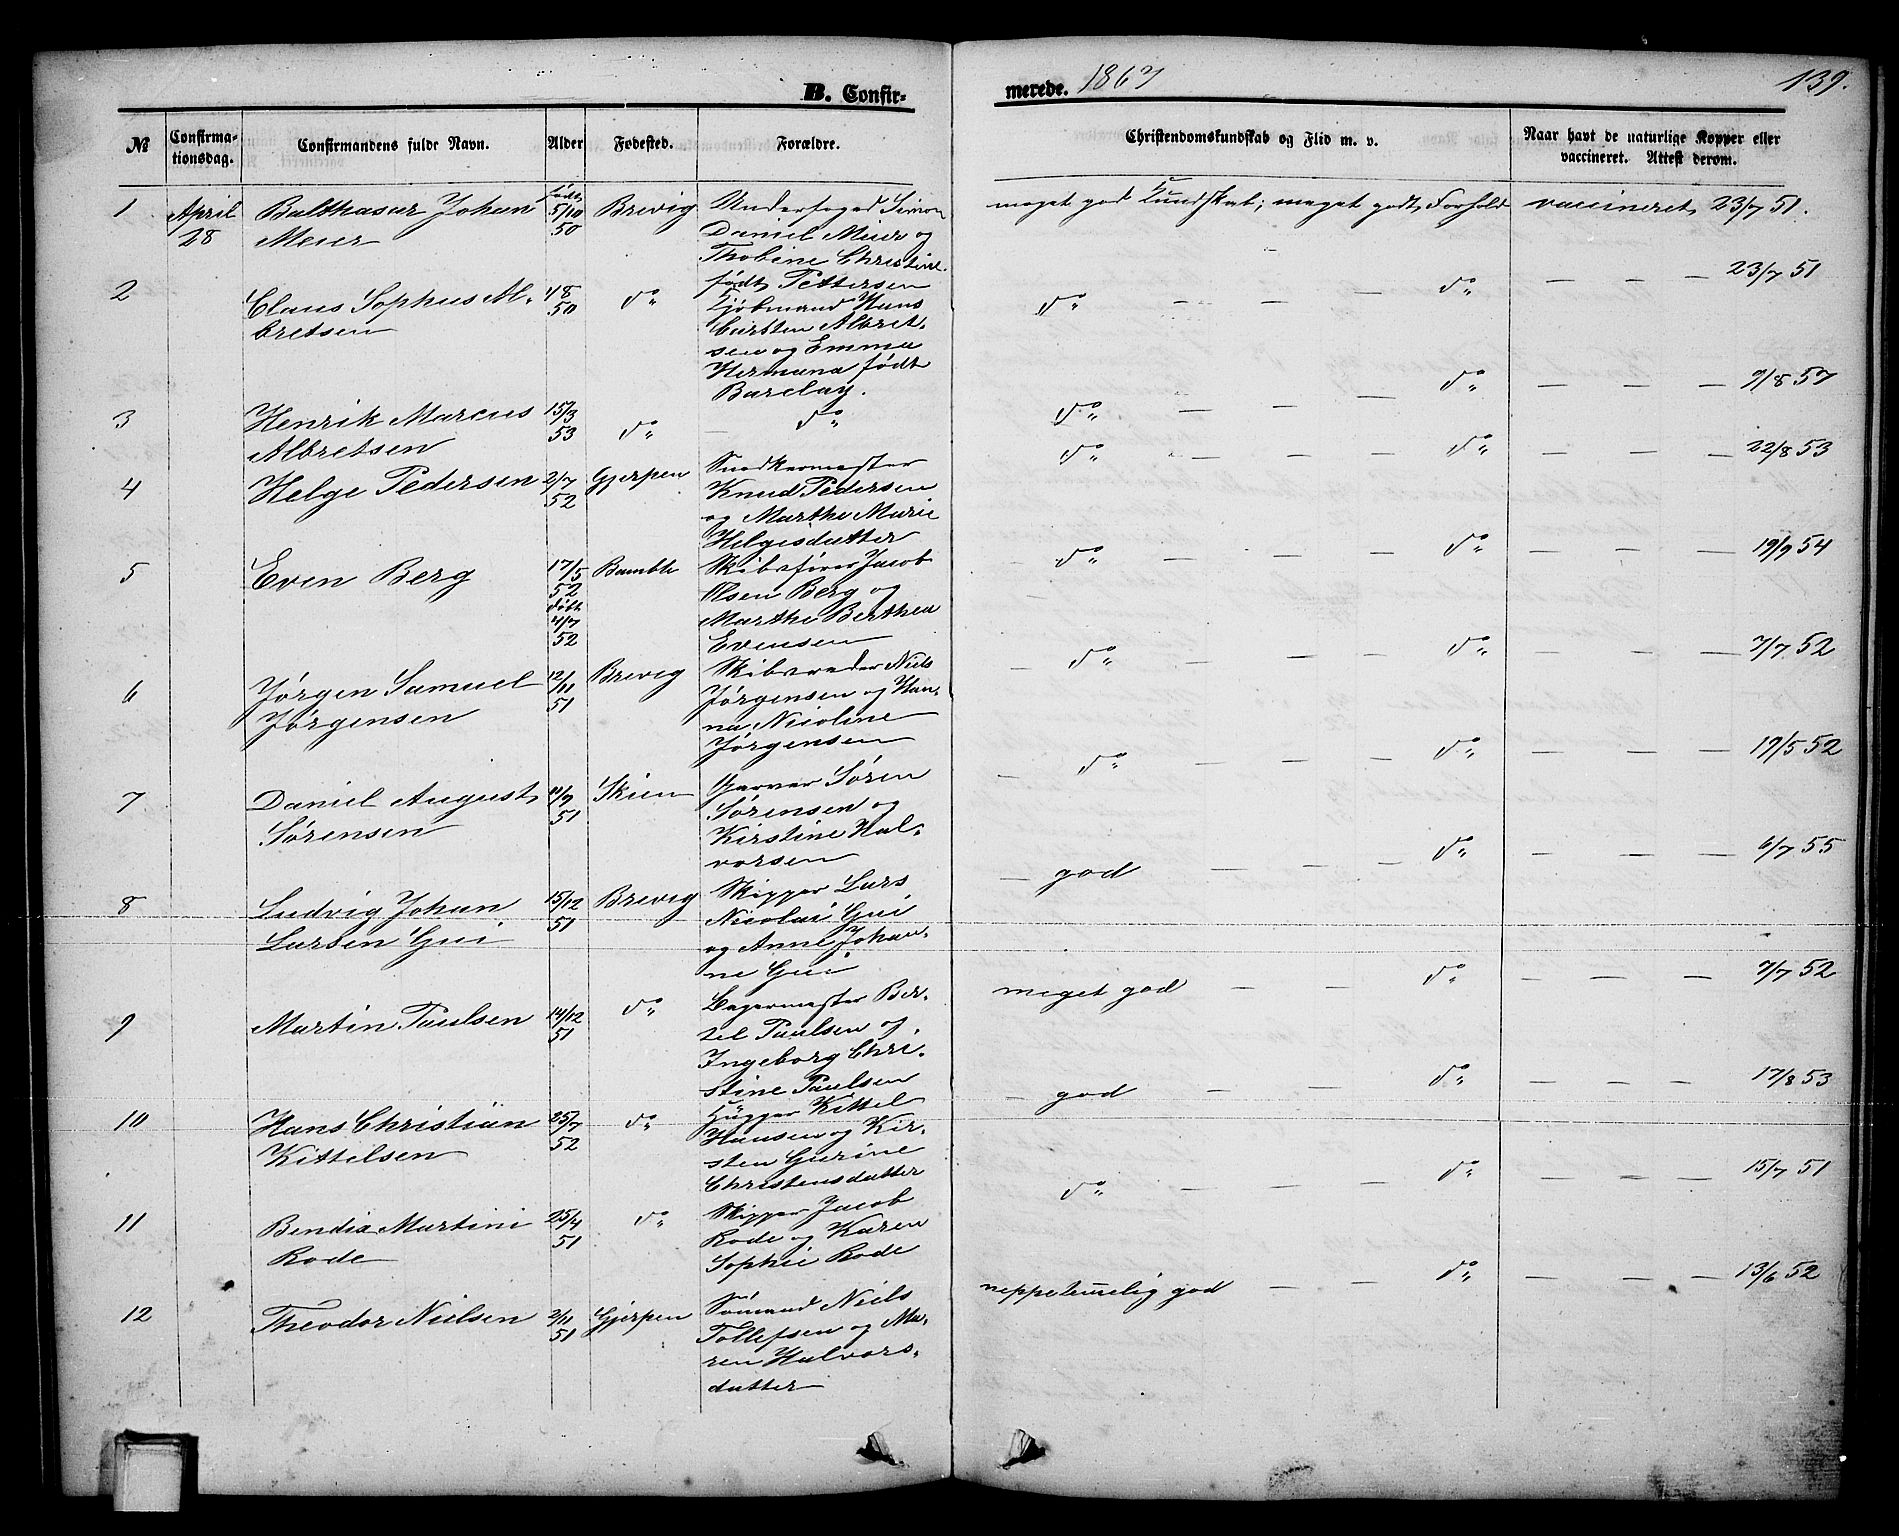 B. Confir-
merede. 1867
139.
№
Confirma-
tionsdag.
Confirmandens fulde Navn.
Alder
Fødested.
Forældre.
Christendomskundskab og Flid m. v.
Naar havt de naturlige Kopper eller
vaccineret. Attest derom.
1 April 28 Balthasar Johan Meier
født 5/10 50
Brevig
Underfoged Simon
Daniel Meier og
Thobine Christine
født Pettersen
meget god Kundskab; meget godt Forhold
vaccineret 23/7 51.
2 Claus Sophus Al-
bretsen
4/8 50
do
Kjøbmand Hans
Carsten Albret-
sen og Emma
Hermana født
Barclay.
do — — — do — — — 23/7 51
3 Henrik Marcus
Albretsen
15/3 53
do
do
do — — — do — — — 9/8 57
4 Helge Pedersen
2/7 52
Gjerpen
Snedkermester
Knud Pedersen
og Marthe Marie
Helgesdatter
do — — — do — — — 22/8 53
5 Even Berg
17/5 52
døbt 4/7 52
Bamble
Skibsfører Jacob
Olsen Berg og
Marthe Berthea
Evensen
do — — — do — — — 19/9 54
6 Jørgen Samuel
Jørgensen
12/11 51
Brevig
Skibsreder Niels
Jørgensen og Han-
na Nicoline
Jørgensen
do — — — do — — — 7/7 52
7 Daniel August
Sørensen
11/9 51
Skien
Garver Søren
Sørensen og
Kirstine Hal-
vorsen
do — — — do — — — 19/5 52
8 Ludvig Johan
Larsen Gui
15/12 51
Brevig
Skipper Lars
Nicolai Gui
og Anne Johan-
ne Gui
god — — — do — — — 6/7 55
9 Martin Paulsen
14/12 51
do
Bagermester Ber-
tel Paulsen og
Ingeborg Chri-
stine Paulsen
meget god — — do — — — 7/7 52
10 Hans Christian
Kittelsen
25/7 52
do
Kittel
Hansen og Kir-
sten Gurine
Christensdatter
god — — do — — — 17/8 53
11 Bendix Martini
Rode
25/4 51
do
Skipper Jacob
Rode og Karen
Sophie Rode
do — — — do — — — 15/7 51
12 Theodor Nielsen
2/11 51
Gjerpen
Sømand Niels
Tollefsen og Ma-
ren Halvors-
datter
neppe temmelig god — — do — — — 13/6 52